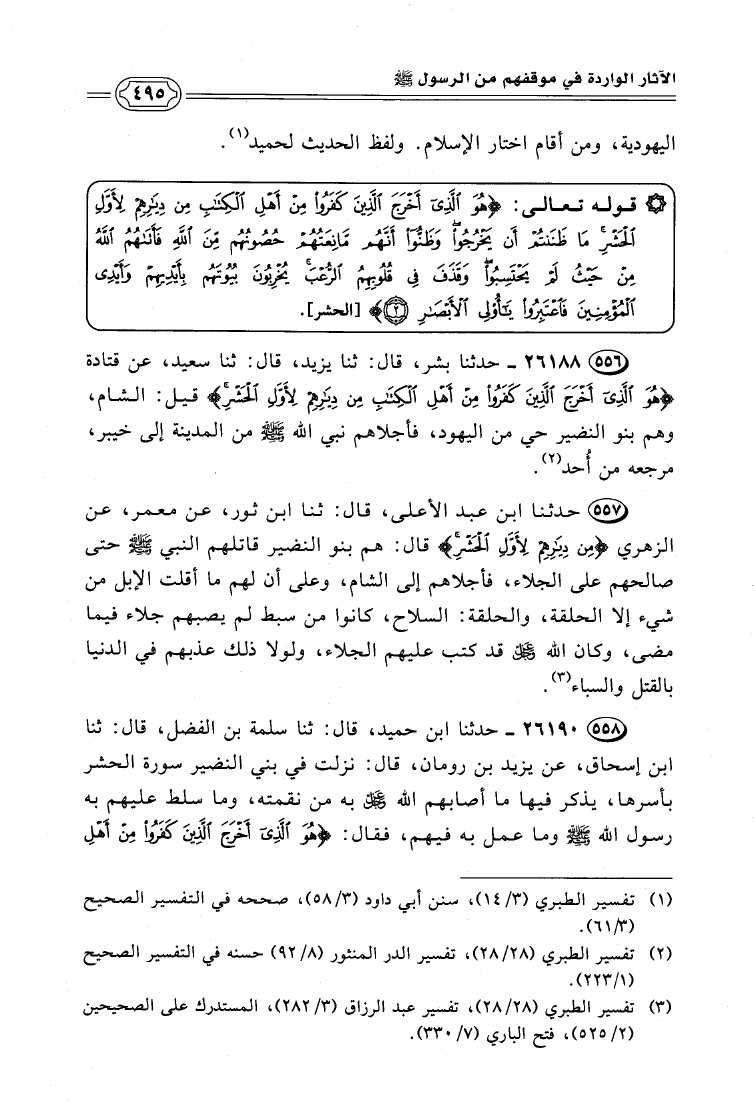 الآثار الواردة في موقفهم من الرسول ﷺ
٤٩٥
اليهودية، ومن أقام اختار الإسلام. ولفظ الحديث لحميد(١).
۞ قوله تعالى: ﴿هُوَ ٱلَّذِىٓ أَخْرَجَ ٱلَّذِينَ كَفَرُوا۟ مِنْ أَهْلِ ٱلْكِتَٰبِ مِن دِيَٰرِهِمْ لِأَوَّلِ
ٱلْحَشْرِ ۚ مَا ظَنَنتُمْ أَن يَخْرُجُوا۟ ۖ وَظَنُّوٓا۟ أَنَّهُم مَّانِعَتُهُمْ حُصُونُهُم مِّنَ ٱللَّهِ فَأَتَىٰهُمُ ٱللَّهُ
مِنْ حَيْثُ لَمْ يَحْتَسِبُوا۟ ۖ وَقَذَفَ فِى قُلُوبِهِمُ ٱلرُّعْبَ ۚ يُخْرِبُونَ بُيُوتَهُم بِأَيْدِيهِمْ وَأَيْدِى
ٱلْمُؤْمِنِينَ فَٱعْتَبِرُوا۟ يَٰٓأُو۟لِى ٱلْأَبْصَٰرِ ٢﴾ [الحشر].
(٥٥٦) ٢٦١٨٨ ـ حدثنا بشر، قال: ثنا يزيد، قال: ثنا سعيد، عن قتادة
﴿هُوَ ٱلَّذِىٓ أَخْرَجَ ٱلَّذِينَ كَفَرُوا۟ مِنْ أَهْلِ ٱلْكِتَٰبِ مِن دِيَٰرِهِمْ لِأَوَّلِ ٱلْحَشْرِ ۚ﴾ قيل: الشام،
وهم بنو النضير حي من اليهود، فأجلاهم نبي الله ﷺ من المدينة إلى خيبر،
مرجعه من أُحد(٢).
(٥٥٧) حدثنا ابن عبد الأعلى، قال: ثنا ابن ثور، عن معمر، عن
الزهري ﴿مِن دِيَٰرِهِمْ لِأَوَّلِ ٱلْحَشْرِ ۚ﴾ قال: هم بنو النضير قاتلهم النبي ﷺ حتى
صالحهم على الجلاء، فأجلاهم إلى الشام، وعلى أن لهم ما أقلت الإبل من
شيء إلا الحلقة، والحلقة: السلاح، كانوا من سبط لم يصبهم جلاء فيما
مضى، وكان الله ﷻ قد كتب عليهم الجلاء، ولولا ذلك عذبهم في الدنيا
بالقتل والسباء(٣).
(٥٥٨) ٢٦١٩٠ ـ حدثنا ابن حميد، قال: ثنا سلمة بن الفضل، قال: ثنا
ابن إسحاق، عن يزيد بن رومان، قال: نزلت في بني النضير سورة الحشر
بأسرها، يذكر فيها ما أصابهم الله ﷻ به من نقمته، وما سلط عليهم به
رسول الله ﷺ وما عمل به فيهم، فقال: ﴿هُوَ ٱلَّذِىٓ أَخْرَجَ ٱلَّذِينَ كَفَرُوا۟ مِنْ أَهْلِ
(١) تفسير الطبري (١٤/٣)، سنن أبي داود (٥٨/٣)، صححه في التفسير الصحيح
(٦١/٣).
(٢) تفسير الطبري (٢٨/٢٨)، تفسير الدر المنثور (٩٢/٨) حسنه في التفسير الصحيح
(٢٢٣/١).
(٣) تفسير الطبري (٢٨/٢٨)، تفسير عبد الرزاق (٢٨٢/٣)، المستدرك على الصحيحين
(٥٢٥/٢)، فتح الباري (٣٣٠/٧).